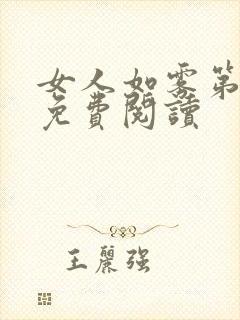 女人如雾第
免費閱讀
王麗强